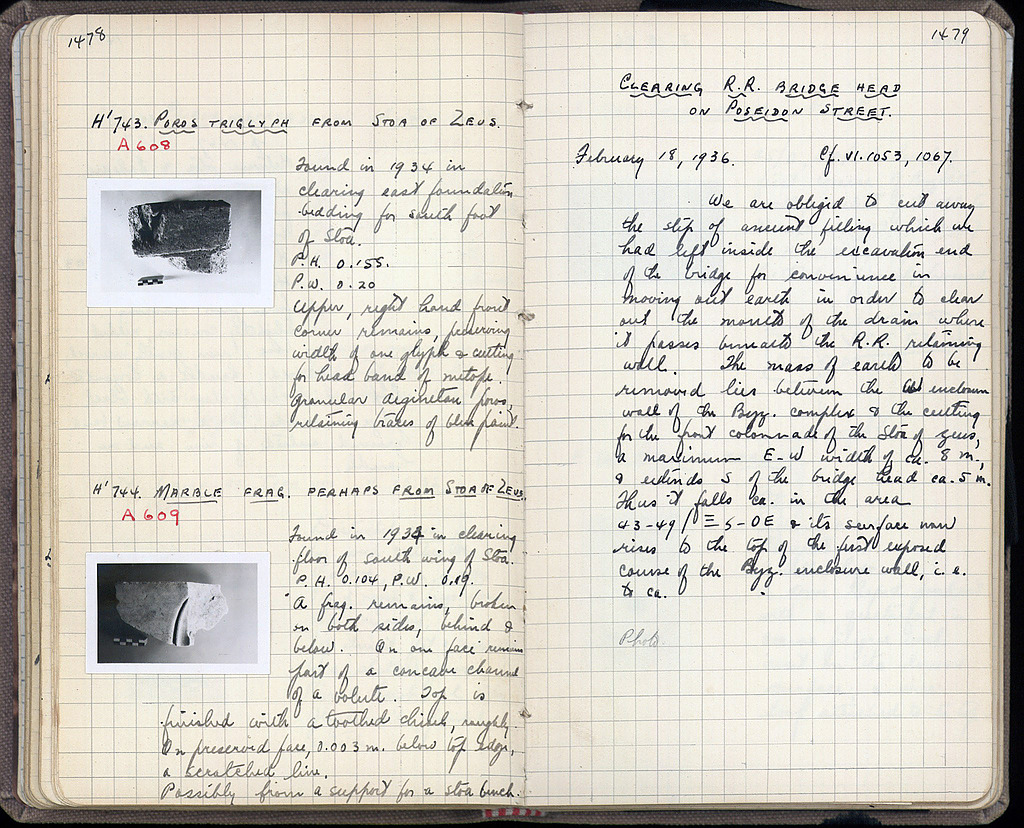 1478
H' 743. POROS TRIGLYPH FROM STOA OF ZEUS.
A 608
Found in 1934 in
clearing east foundation
bedding for south foot
of Stoa.
P.H. 0.155.
P.W. 0.20
Upper, right hand front
corner remains, preserving
width of one glyph & cutting
for head band of metope.
Granular Aeginetan poros,
retaining traces of blue paint.
H' 744. MARBLE FRAG. PERHAPS FROM STOA OF ZEUS.
A 609
Found in 1934 in clearing
floor of south wing of Stoa.
P.H. 0.104, P.W. 0.19.
A frag. remains, broken
on both sides, behind &
below. On one face remains
part of a concave channel
of a volute. Top is
finished with a toothed chisel, roughly.
On preserved face, 0.003 m. below top edge,
a scratched line.
Possibly from a support for a stoa bench.
1479
CLEARING R.R. BRIDGE HEAD
ON POSEIDON STREET.
February 18, 1936. Cf. VI. 1053, 1067.
We are obliged to cut away
the strip of ancient filling which we
had left inside the excavation end
of the bridge for convenience in
moving out earth in order to clear
out the mouth of the drain where
it passes beneath the R.R. retaining
wall. The mass of earth to be
removed lies between the enclosure
wall of the Byz. complex & the cutting
for the front colonnade of the Stoa of Zeus,
a maximum E-W width of ca. 8 m.,
& extends S of the bridge head ca. 5 m.
Thus it falls ca. in the area
43-49/Ξ 5-ΟΕ & its surface now
rises to the top of the first exposed
course of the Byz. enclosure wall, i.e.
to ca. .
Photo.